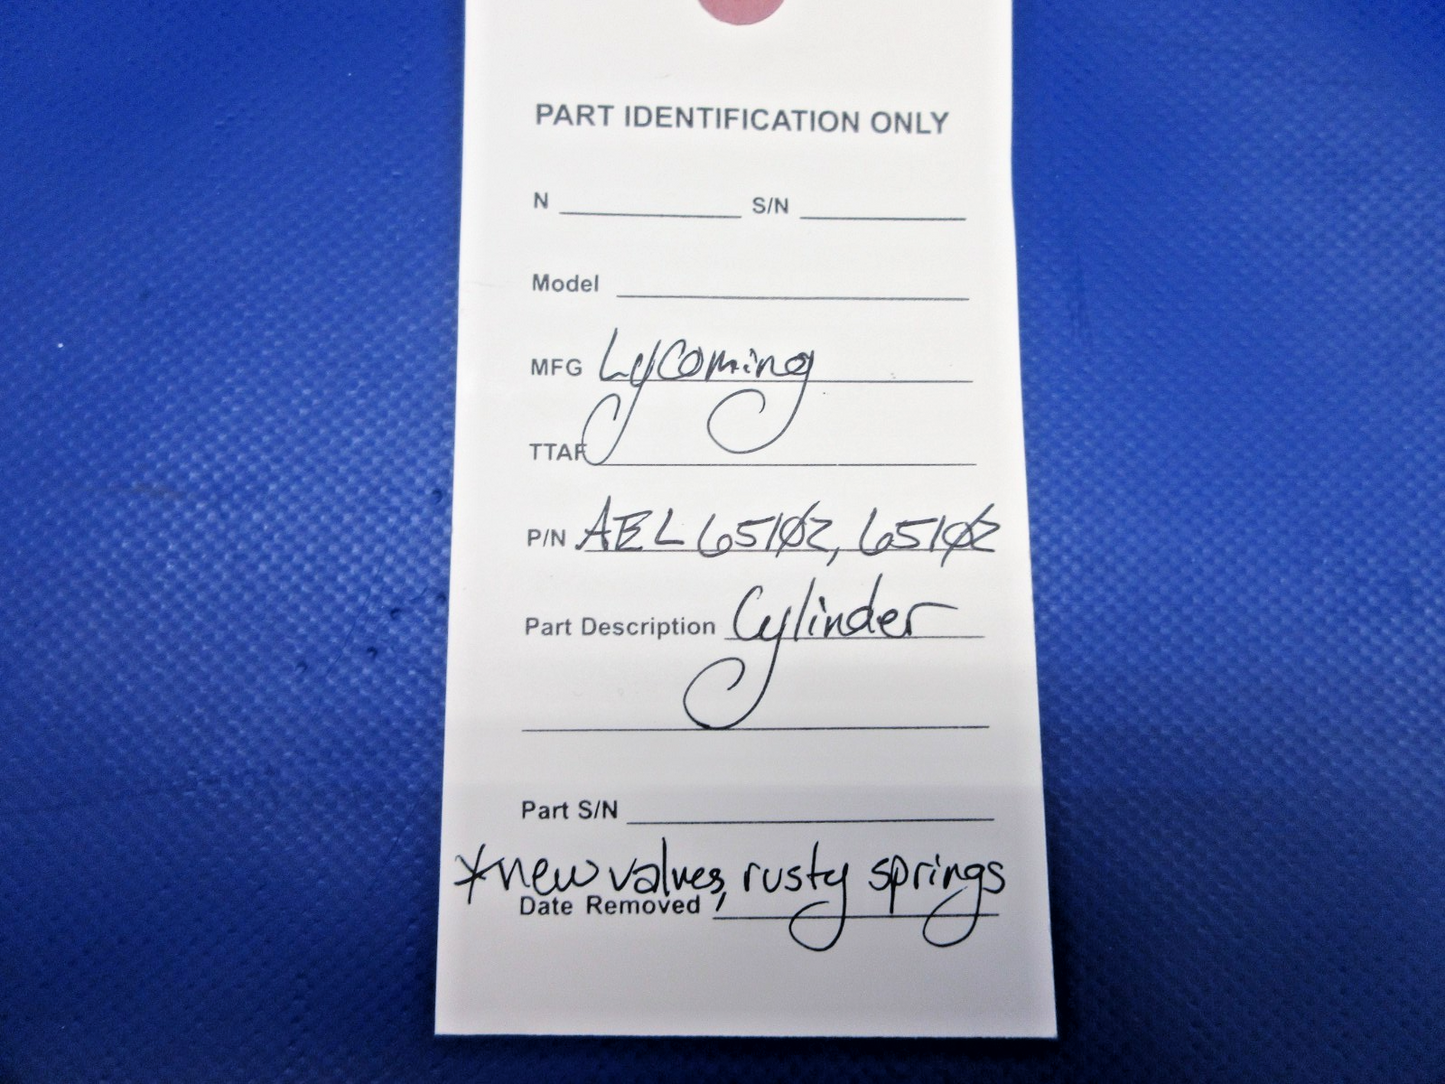 PART IDENTIFICATION ONLY
N S/N
Model
MFG Lycoming
TTAF
P/N AEL 65102, 65102
Part Description Cylinder
Part S/N
*new valves, rusty springs
Date Removed